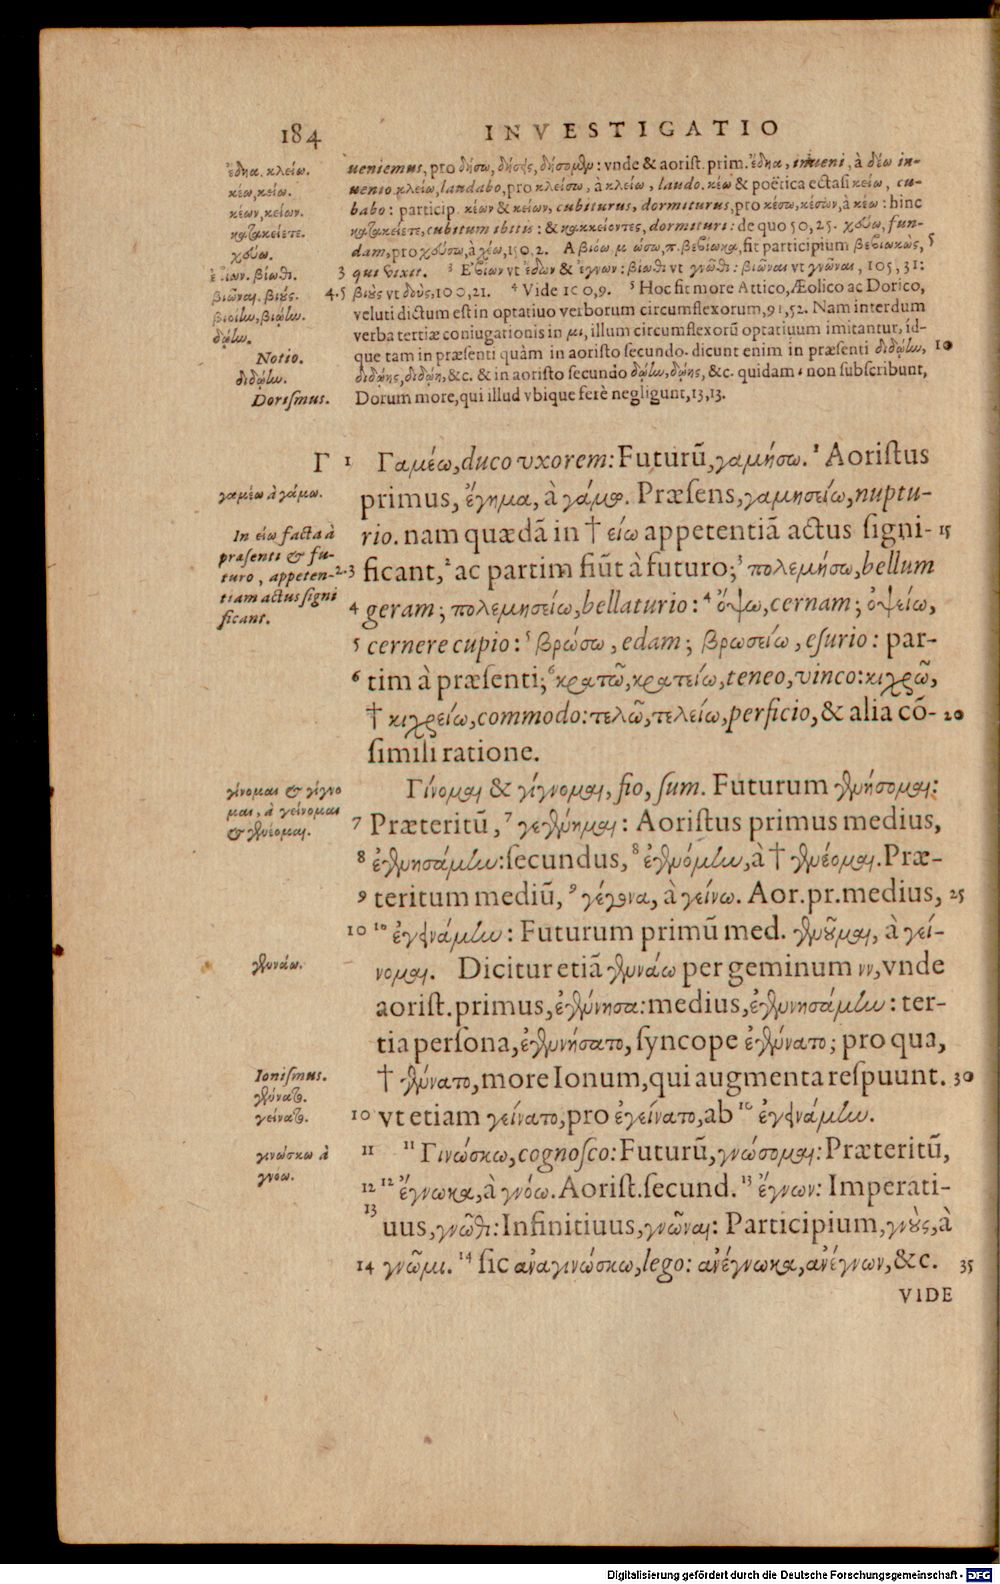 184 INVESTIGATIO
ἔδηα. κλείω.
κέω, κείω.
κέων, κείων.
κατακείετε.
χεύω.
ἐβίων. βίωθι.
βιῶναι. βιούς.
βιοίην, βιῴην.
δῴην.
Notio.
διδῴην.
Dorismus.
ueniemus, pro δήσω, δήσεις, δήσομεν: vnde & aorist. prim. ἔδηα, inueni, à δέω in-
uenio. κλείω, laudabo, pro κλείσω, à κλείω, laudo. κέω & poëtica ectasi κείω, cu-
babo: particip. κέων & κείων, cubiturus, dormiturus, pro κέσω, κέσων, à κέω: hinc
κατακείετε, cubitum ibitis: & κακκείοντες, dormituri: de quo 50, 25. χεύω, fun-
dam, pro χεύσω, à χέω, 150, 2. A βιόω, μ ώσω, π. βεβίωκα, fit participium βεβιωκὼς, 5
3 qui vixit. 3 Ἐβίων vt ἔδων & ἔγνων: βίωθι vt γνῶθι: βιῶναι vt γνῶναι, 105, 31:
4.5 βιοὺς vt δοὺς, 100, 21. 4 Vide 100, 9. 5 Hoc fit more Attico, Æolico ac Dorico,
veluti dictum est in optatiuo verborum circumflexorum, 91, 52. Nam interdum
verba tertiæ coniugationis in μι, illum circumflexorũ optatiuum imitantur, id-
que tam in præsenti quàm in aoristo secundo. dicunt enim in præsenti διδῴην, 10
διδῴης, διδῴη, &c. & in aoristo secundo δῴην, δῴης, &c. quidam ι non subscribunt,
Dorum more, qui illud vbique ferè negligunt, 13, 13.
Γ 1 Γαμέω, duco vxorem: Futurũ, γαμήσω. 1 Aoristus
γαμέω à γάμω.
primus, ἔγημα, à γάμω. Præsens, γαμησείω, nuptu-
In είω facta à
præsenti & fu-
turo, appeten-
tiam actus signi
ficant.
rio. nam quædã in † είω appetentiã actus signi- 15
2.3 ficant, 2 ac partim fiũt à futuro; 3 πολεμήσω, bellum
4 geram; πολεμησείω, bellaturio: 4 ὄψω, cernam; ὀψείω,
5 cernere cupio: 5 βρώσω, edam; βρωσείω, esurio: par-
6 tim à præsenti; 6 κρατῶ, κρατείω, teneo, vinco: κιχρῶ,
† κιχρείω, commodo: τελῶ, τελείω, perficio, & alia cõ- 20
simili ratione.
γίνομαι & γίγνο
μαι, à γείνομαι
& γενέομαι.
Γίνομαι & γίγνομαι, fio, sum. Futurum γενήσομαι:
7 Præteritũ, 7 γεγένημαι: Aoristus primus medius,
8 ἐγενησάμην: secundus, 8 ἐγενόμην, à † γενέομαι. Præ-
9 teritum mediũ, 9 γέγονα, à γείνω. Aor. pr. medius, 25
10 10 ἐγεινάμην: Futurum primũ med. γενοῦμαι, à γεί-
γεννάω.
νομαι. Dicitur etiã γεννάω per geminum νν, vnde
aorist. primus, ἐγέννησα: medius, ἐγεννησάμην: ter-
tia persona, ἐγεννήσατο, syncope ἐγέννατο; pro qua,
Ionismus.
γέννατο.
γείνατο.
† γέννατο, more Ionum, qui augmenta respuunt. 30
10 vt etiam γείνατο, pro ἐγείνατο, ab 10 ἐγεινάμην.
γινώσκω à
γνόω.
11 11 Γινώσκω, cognosco: Futurũ, γνώσομαι: Præteritũ,
12 12 ἔγνωκα, à γνόω. Aorist. secund. 13 ἔγνων: Imperati-
13 uus, γνῶθι: Infinitiuus, γνῶναι: Participium, γνοὺς, à
14 γνῶμι. 14 sic ἀναγινώσκω, lego: ἀνέγνωκα, ἀνέγνων, &c. 35
VIDE
Digitalisierung gefördert durch die Deutsche Forschungsgemeinschaft - DFG